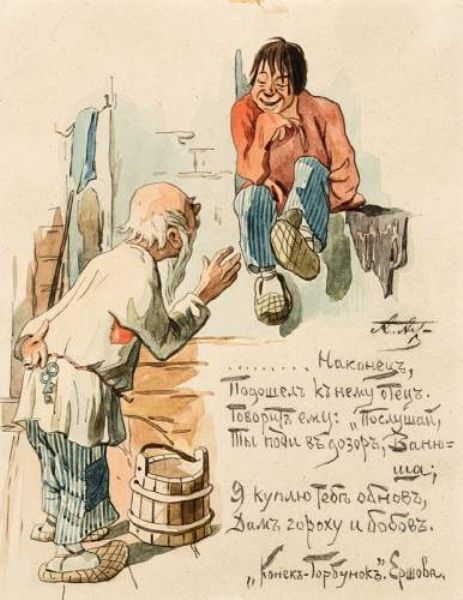 ......... Наконецъ,
Подошелъ къ нему отецъ.
Говоритъ ему: „Послушай,
Ты поди въ дозоръ, Ваню-
ша;
Я куплю тебѣ обновъ,
Дамъ гороху и бобовъ.
„Конекъ-Горбунокъ". Ершова.